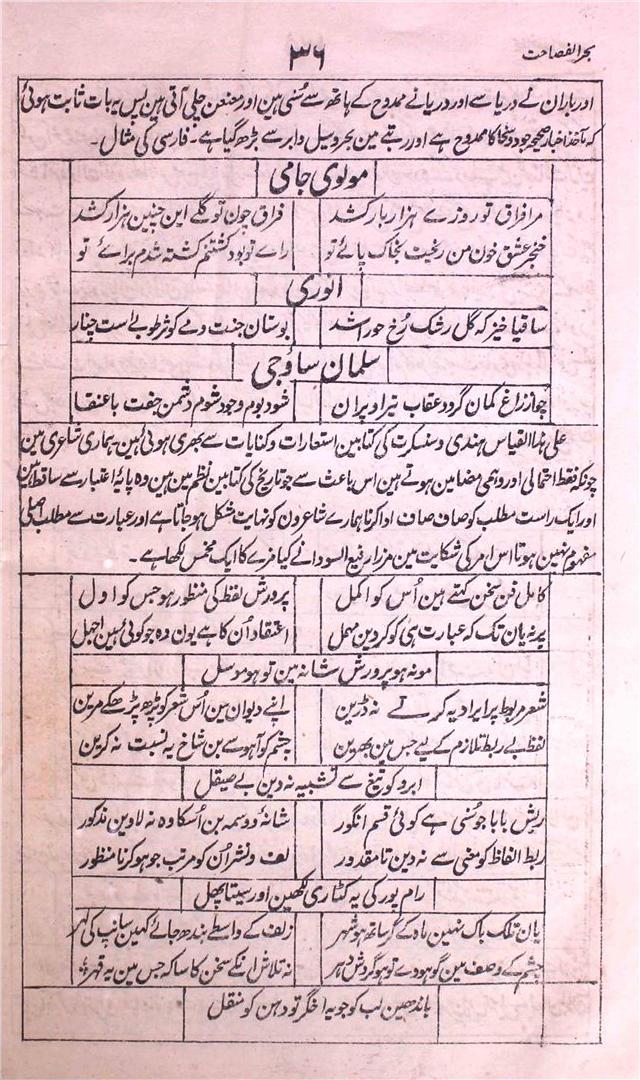 بحر الفصاحت
۳۶
اور باران نے دریا سے اور دریا نے ممدوح کے ہاتھ سے سُنی ہین اور معنعن چلی آتی ہین پس یہ بات ثابت ہوئی
کہ مآخذ اخبار صحیحہ جود و سخا کا ممدوح ہے اور رتبے مین بحر و سیل و ابر سے بڑھ گیا ہے۔ فارسی کی مثال۔
مولوی جامی
مرا فراق تو روزے ہزار بار کشد
فراق چون تو گلے این چنین ہزار کشد
خنجر عشق خون من ریخت بخاک پائے تو
رائے تو بود کشتنم کشتہ شدم برائے تو
انوری
ساقیا خیز کہ گل رشک رُخ حورا شد
بوستان جنت و مے کوثر طوبے است چنار
سلمان ساؤجی
چو از زاغ کمان گردد عقاب تیر او پران
شود بوم وجود شوم دشمن جفت با عنقا
علی ہذا القیاس ہندی و سنسکرت کی کتابین استعارات و کنایات سے بھری ہوئی ہین ہماری شاعری مین
چونکہ فقط احتمالی اور وہمی مضامین ہوتے ہین اس باعث سے جو تاریخ کی کتابین نظم مین ہین وہ پایۂ اعتبار سے ساقط ہین
اور ایک راست مطلب کو صاف صاف ادا کرنا ہمارے شاعرون کو نہایت مشکل ہو جاتا ہے اور عبارت سے مطلب اصلی
مفہوم نہین ہوتا اس امر کی شکایت مین مرزا رفیع السودا نے کیا مزے کا ایک مخمس لکھا ہے۔
کامل فن سخن کہتے ہین اُس کو اکمل
پرورش لفظ کی منظور ہو جس کو اول
پر نہ یان تک کہ عبارت ہی کو کر دین مہمل
اعتقاد اُن کا ہے یون وہ جو کوئی ہین اجہل
مو نہ ہو پرورش شانہ مین تو ہو موسل
شعر مربوط پر ایراد یہ کرتے نہ ڈرین
اپنے دیوان مین اُس شعر کو پڑھ پڑھ کے مرین
لفظ بے ربط تلازم کے لیے جس مین بھرین
چشم کو آہو سے بن شاخ یہ نسبت نہ کرین
ابرو کو تیغ سے تشبیہ نہ دین بے صیقل
ریش بابا جو سُنی ہے کوئی قسم انگور
شانہ و وسمہ بن اُسکا وہ نہ لاوین مذکور
ربط الفاظ کو معنی سے نہ دین تا مقدور
لف و نشر اُن کو مرتب جو ہو کرنا منظور
رام پور کی یہ کٹاری لکھین اور سیتا پھل
یان تلک باک نہین ماہ کے گر ساتھ ہو شہر
زلف کے واسطے بندھ جائے کہین سانپ کی لہر
چشم کے وصف مین گو ہووے تو ہو گردش دہر
نہ تلاش انکے سخن کا سا کہ جس مین یہ قہر
باندھین لب کو جو یہ اخگر تو دہن کو منقل